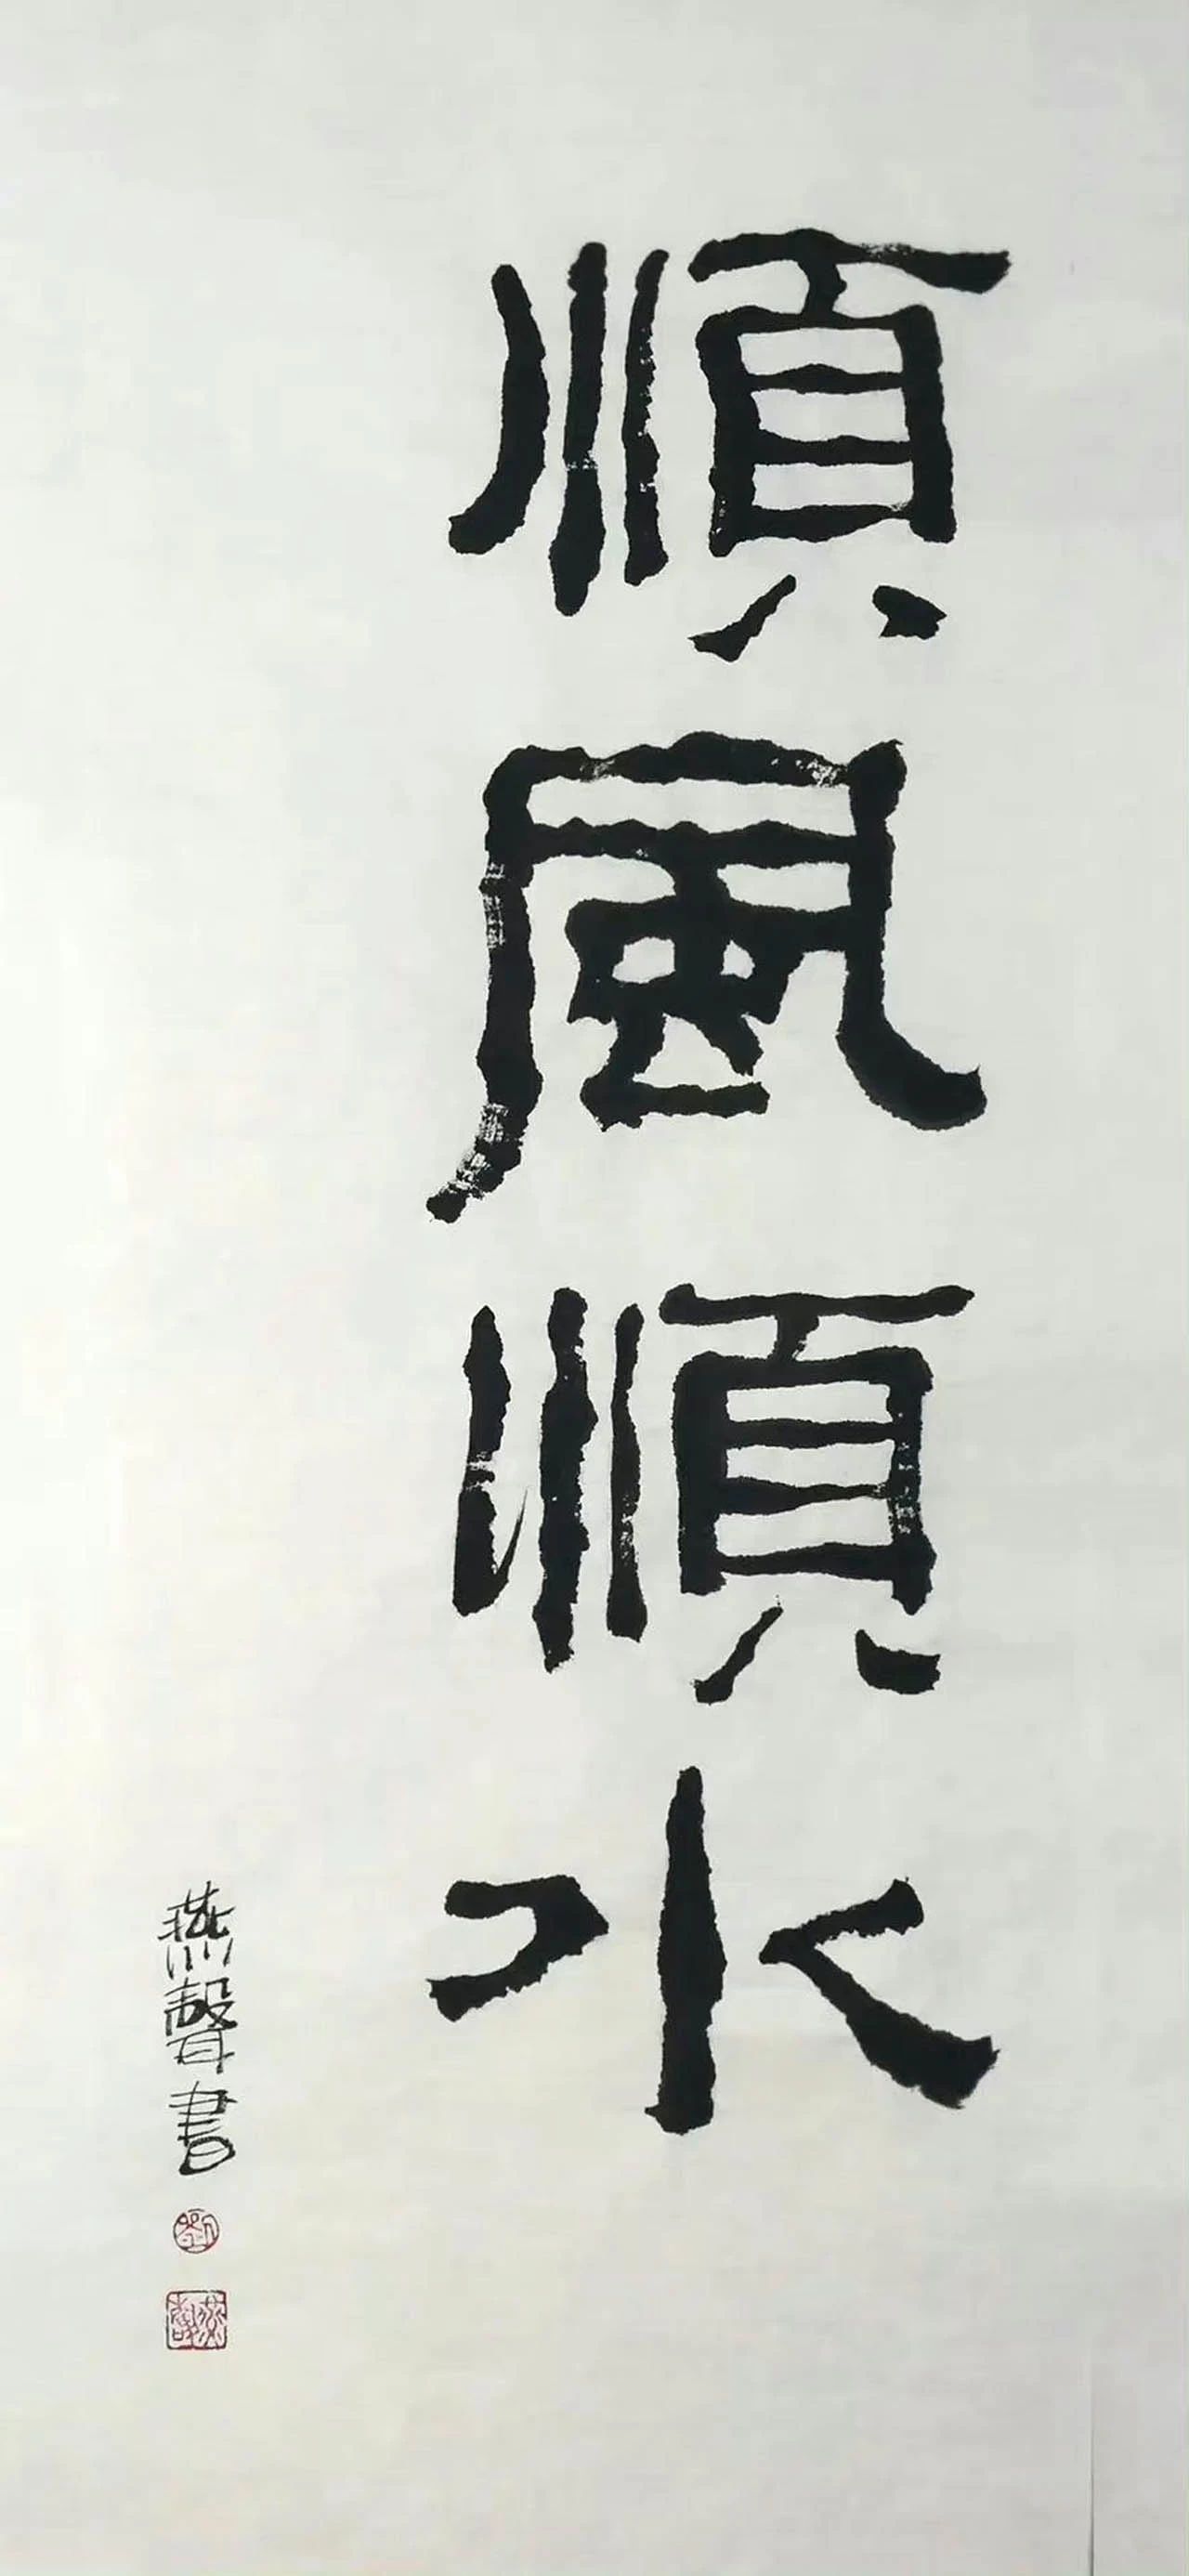 順風順水
燕聲書